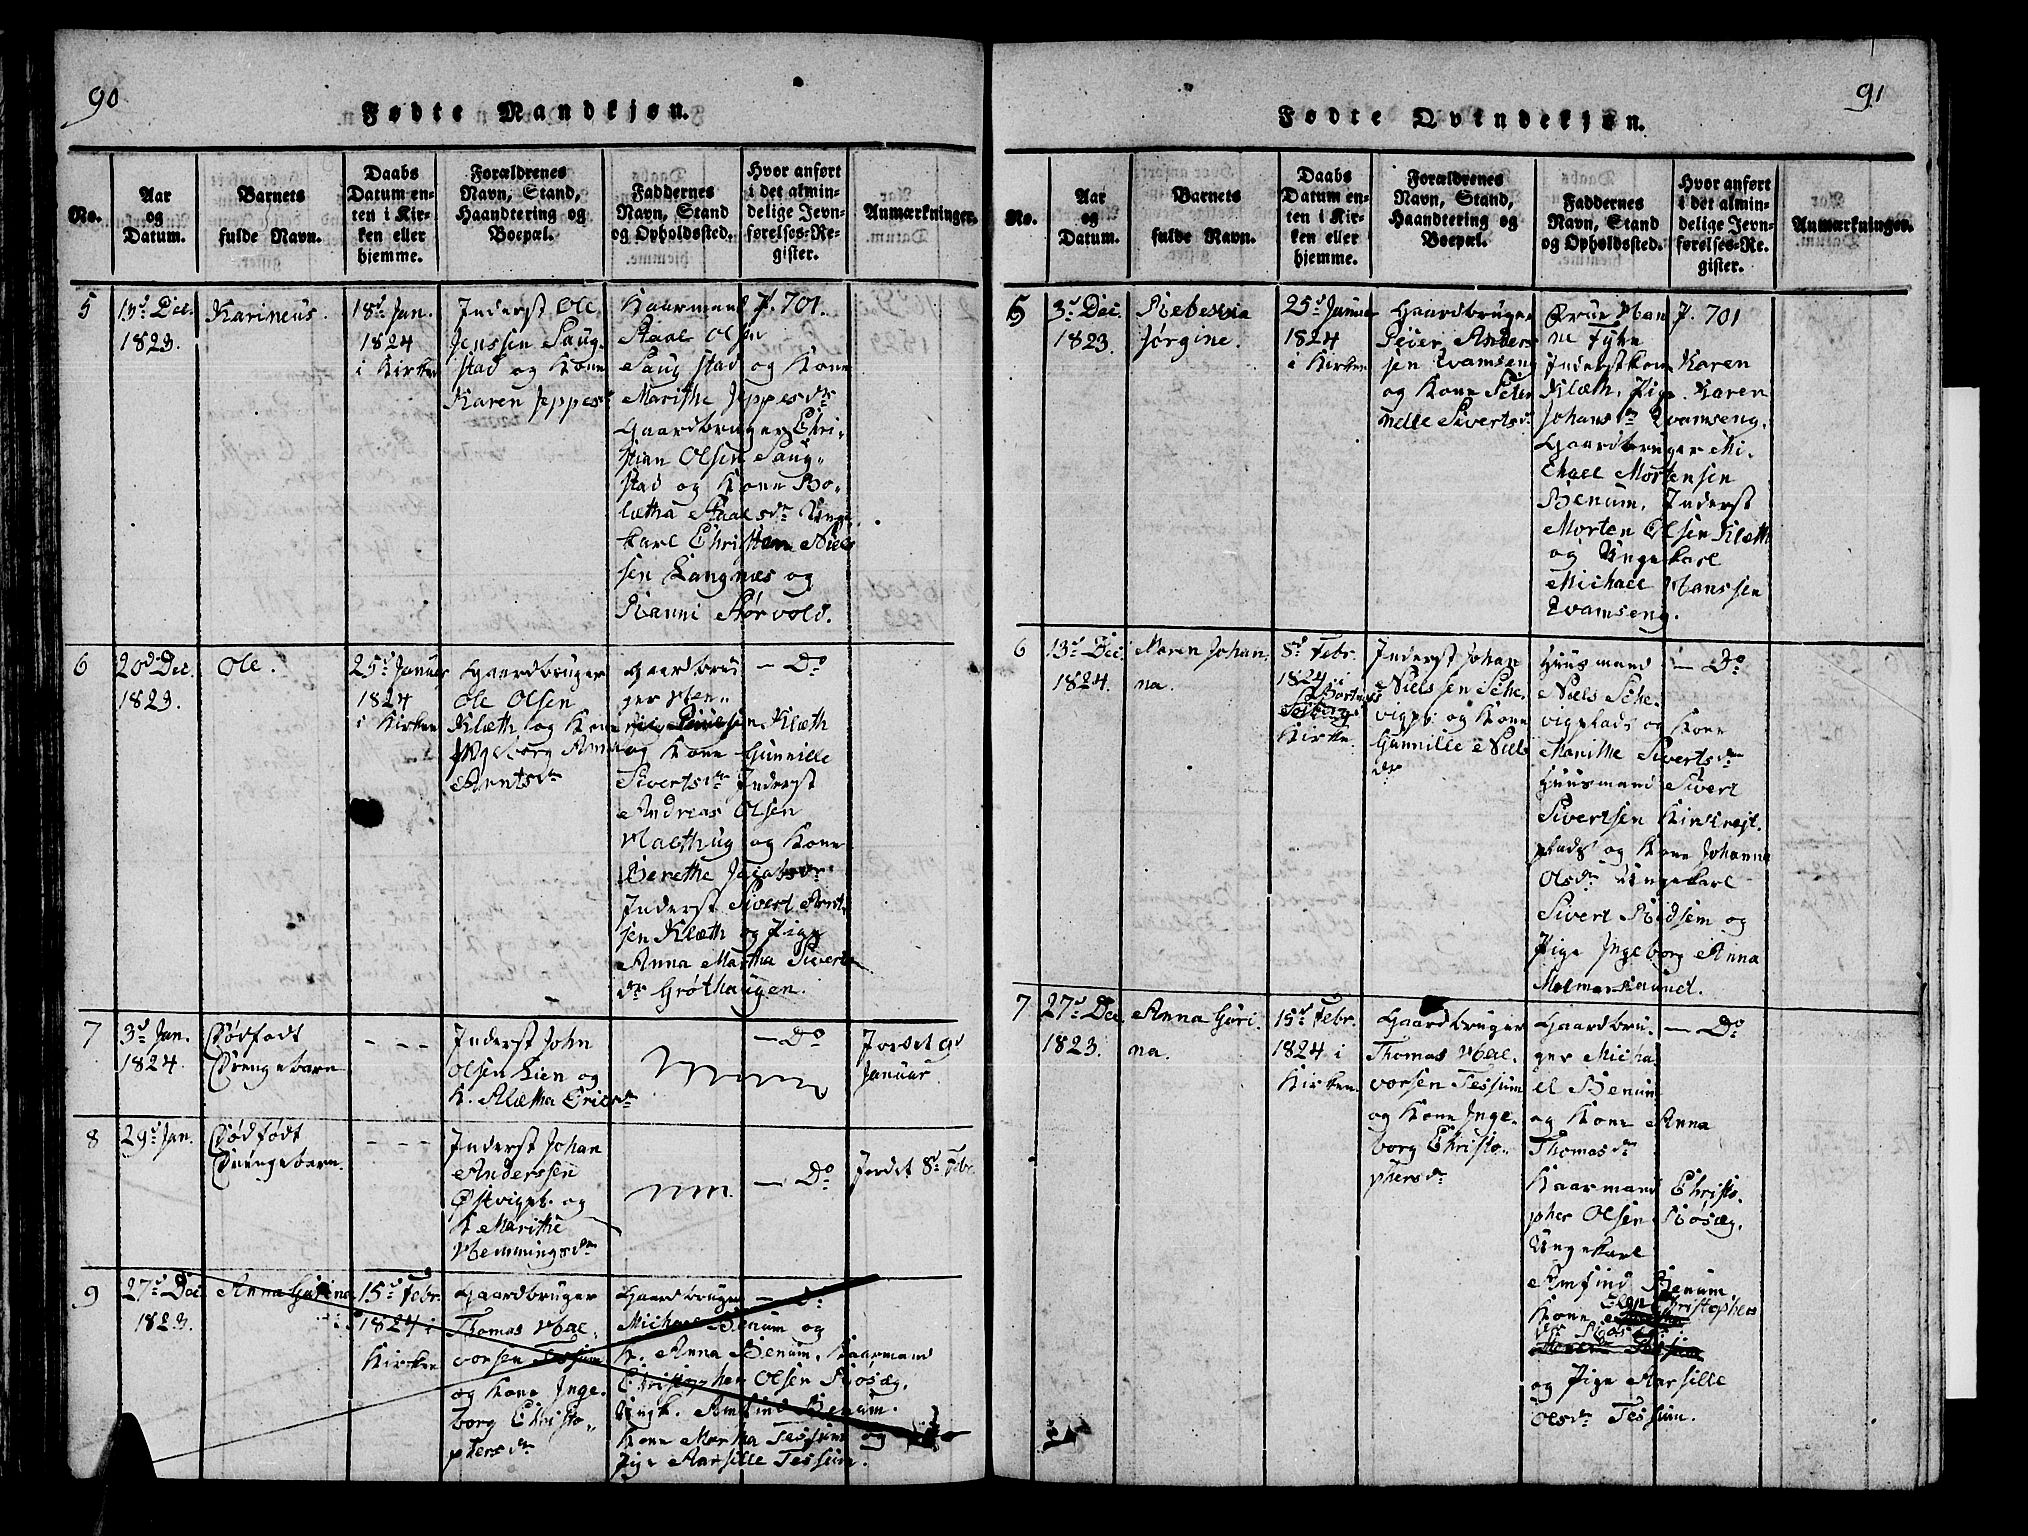 90
Fødte Mandkjøn.
No.
Aar
og
Datum.
Barnets
fulde Navn.
Daabs
Datum en-
ten i Kir-
ken eller
hjemme.
Forældrenes
Navn, Stand,
Haandtering og
Boepæl.
Faddernes
Navn, Stand
og Opholdssted.
Hvor anført
i det almin-
delige Jevn-
førelses-Re-
gister.
Anmærkninger.
5
13d Dec.
1823.
Karineus.
18d Jan.
1824
i Kirken
Inderst Ole
Jenssen Saug-
stad og Kone
Karen Jeppesdr
Kaarmand
Staal Olsen
Saugstad og Kone
Marithe Jeppesdr
Gaardbruger Chri-
stian Olsen Saug-
stad og Kone Bo-
letha Staalsdr Unge-
karl Christian Niels
sen Langnæs og
Ranni Størvold.
P. 701.
6
20d Dec.
1823.
Ole.
25d Januar
1824
i Kirken
Gaardbruger
Ole Olsen
Klæth og Kone
Ingeborg Anna
Arntsdr
Gaardbru-
ger Hen-
Klæth
og Kone Gunnille
Sivertsdr Inderst
Andreas Olsen
og Kone
Berethe Jacobsdr
Inderst Sivert Arnt-
sen Klæth og Pige
Anna Martha Siverts
dr Grøthaugen.
— Do
7
3d Jan.
1824.
Dødfødt
Drengebarn
- - -
Inderst John
Olsen Lien og
K. Aletha Ericsdr
— Do
Jordet 9d
Januar.
8
29d Jan.
Dødfødt
Drengebarn.
- - -
Inderst Johan
Anderssen
Østvigpl. og
K Marithe
Hemmingsdr
— Do
Jordet 8d Febr
9
27d Dec.
1823.
Anna Gurina
15d Febr.
1824 i
Kirken
Gaardbruger
Thomas Hal-
vorsen Tessum
og Kone Inge-
borg Christo-
phersdr
Gaardbruger
Michael Benum og
K. Anna Benum. Kaarmand
Christopher Olsen Røsæg,
Ungk. Amfind Benum.
Kone Martha Tessum og
Pige Aarsille Tessum.
— Do
91
Fødte Qvindekjøn.
No.
Aar
og
Datum.
Barnets
fulde Navn.
Daabs
Datum en-
ten i Kir-
ken eller
hjemme.
Forældrenes
Navn, Stand,
Haandtering og
Boepæl.
Faddernes
Navn, Stand
og Opholdssted.
Hvor anført
i det almin-
delige Jevn-
førelses-Re-
gister.
Anmærkninger.
5
3d Dec.
1823.
Rebecca
Jørgine.
25d Januar
1824
i Kirken
Gaardbruger
Peder Anders
sen Qvamseng
og Kone Peter
nelle Sivertsdr
Frue Han
ne Fyhn
Inderstkone Karen
Klæth, Pige Karen
Johansdr Qvamseng,
Gaardbruger Mi-
chael Mortensen
Benum, Inderst
Morten Olsen Klæth
og Ungekarl
Michael Hanssen
Qvamseng.
P. 701
6
13d Dec.
1824.
Maren Johan-
na.
8d Febr.
1824 i
Kirke.
Inderst Johan
Nielssen Sche-
vigpl. og Kone
Gunnille Niels
dr
Huusmand
Niels Sche-
vigplads og Kone
Marithe Sivertsdr
Huusmand Sivert
Sivertsen
plads og Kone Johanna
Olsdr Ungekarl
Sivert Ridsem og
Pige Ingeborg Anna
— Do
7
27d Dec.
1823.
Anna Guri-
na.
15d Febr.
1824 i
Kirken.
Gaardbruger
Thomas Hal-
vorsen Tessum
og Kone Inge-
borg Christo-
phersdr
Gaardbru-
ger Micha-
el Benum
og Kone Anna
Thomasdr
Kaarmand Christo-
pher Olsen Røsæg,
Ungekarl
Amfind Benum,
Kone Christophers
dr
og Pige Aarsille
Olsdr Tessum.
— Do